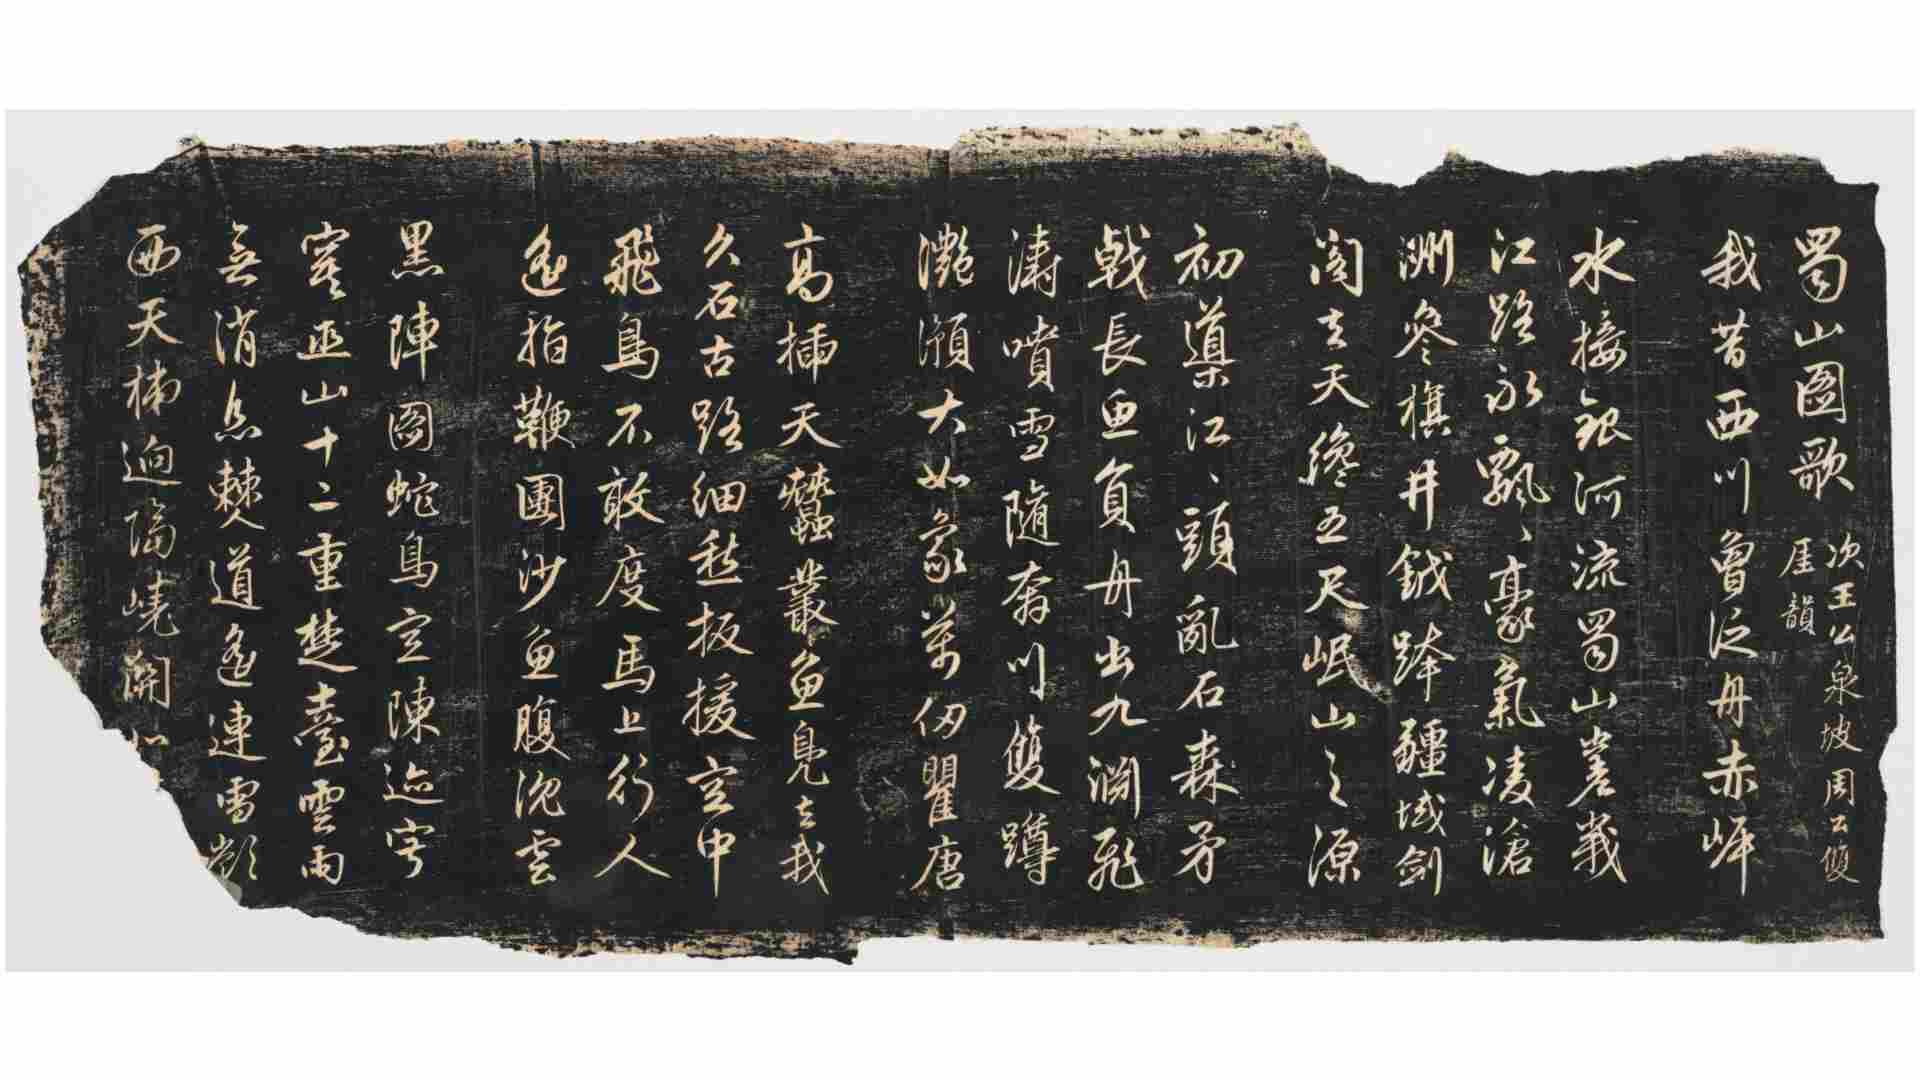 蜀山圖歌 次王公泉坡周公雙
厓韻
我昔西川曾泛舟赤岸
水接銀河流蜀山嵳峩
江路永飄〻豪氣凌滄
洲參旗井鉞跨疆域劍
閣去天纔五尺岷山之源
初導江〻頭亂石森矛
戟長魚負舟出九淵飛
濤噴雪隨奔川雙蹲
灩澦大如象萬仞瞿唐
高插天蠶叢魚鳧去我
久石古路細愁扳援空中
飛鳥不敢度馬上行人
遙指鞭團沙魚腹沈雲
黑陣圖蛇鳥空陳迹寥
寞巫山十二重楚臺雲雨
無消息僰道遙連雪嶺
西天梯迥隔嶢關